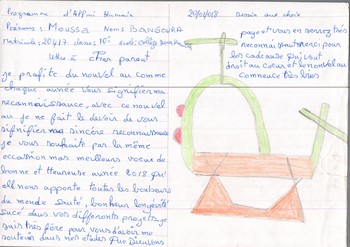 Programme d'Appui Humain 20/01/018 Dessin aux choix
Prénoms: MOUSSA Nom: BANGOURA
Matricule: 20417 classe: 10e
Cher parent
je profite du nouvel au comme
chaque année vous signifier ma
reconnaissance, avec ce nouvel
au je ne fait le devoir de vous
signifier ma sincère reconnaissance
je vous souhaite par la même
occasion mes meilleurs voeux de
bonne et Heureuse année 2018 Qu'
elle nous apporte toutes les bonheurs
du monde santé, bonheur longévité
succé dans vos differents projets je
suis très fère pour vous d'avoir me
soutenir dans mes etudes Que Dieu vous
paye et vous en serrez très
reconnaissant merci pour
les cadeaux qui vout
droit au coeur et le nouvel au
commence très bien